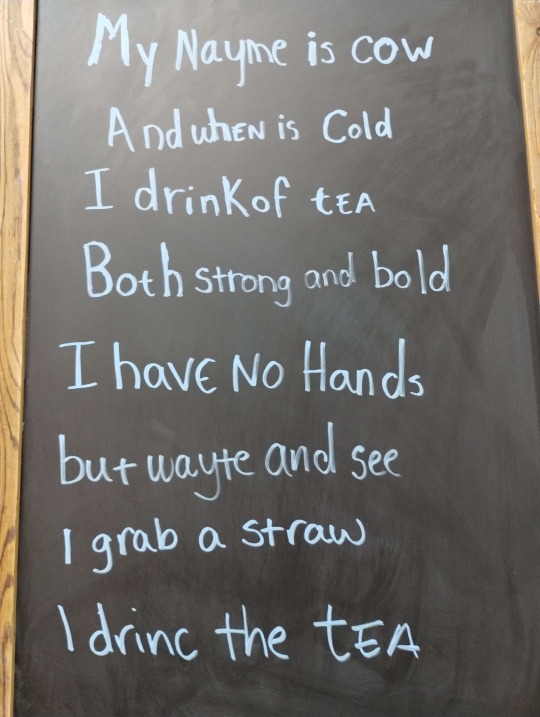 My Nayme is cow
And whEN is Cold
I drink of tEA
Both strong and bold
I havE No Hands
but wayte and see
I grab a straw
I drinc the tEA